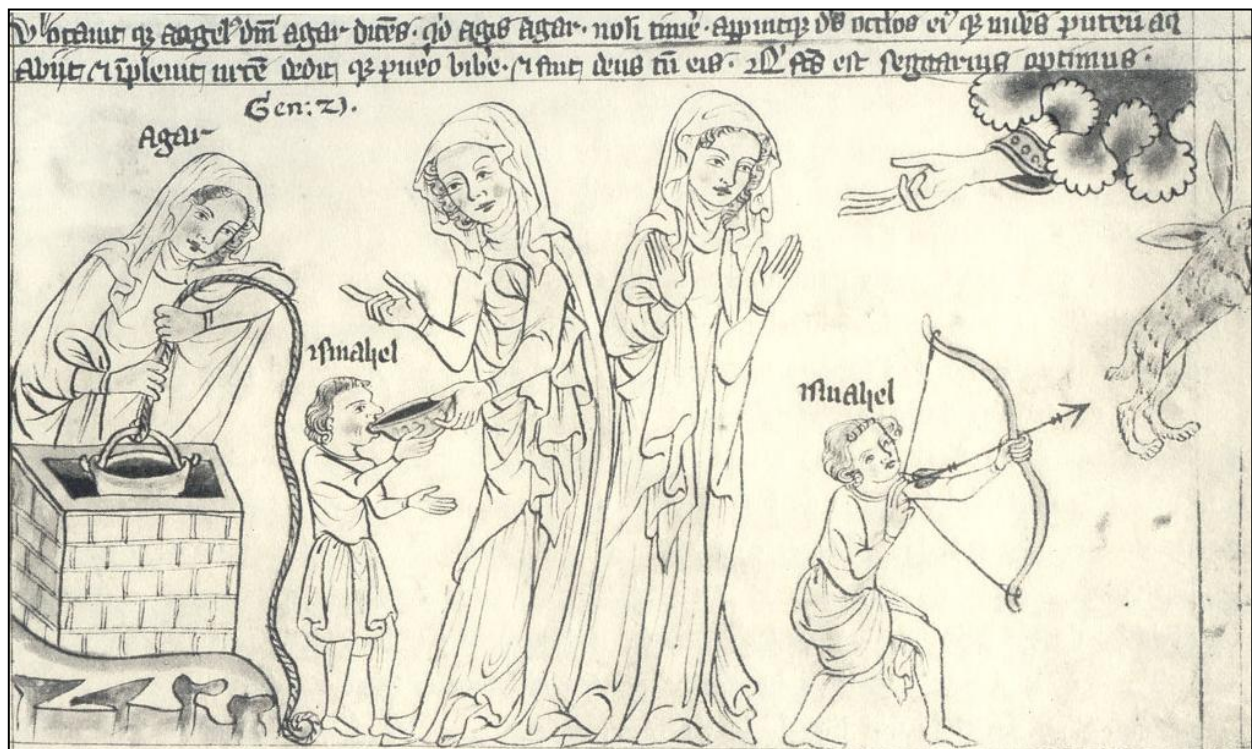 Vocauit q; angel' dm̄ agar dicēs. qͥd agis agar. noli timē. apuitq; dš oclos ei' q; uidēs puteū aq
abijt et īpleuit utrē dedit q; pueo bibe. et fuit deus cū eis. et fcs est segittarius optimus.
Gen: 21.
Agar
ismahel
ismahel